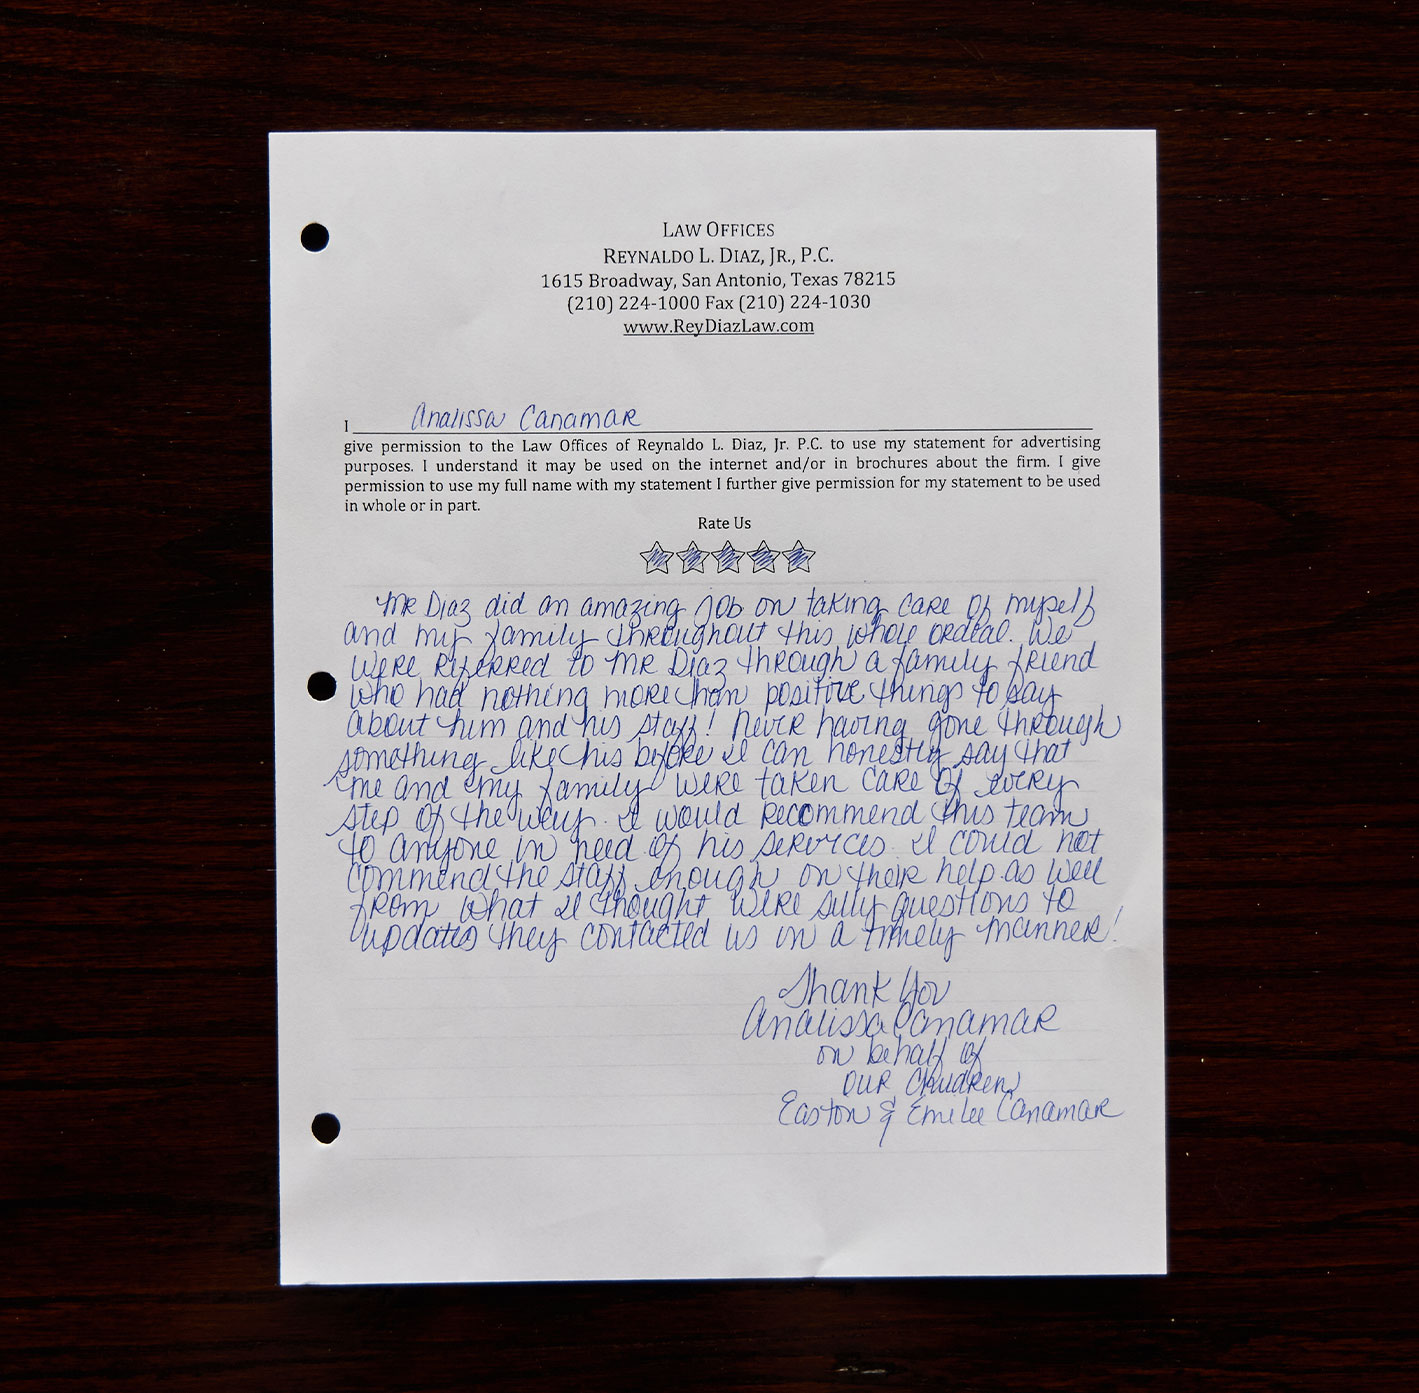 LAW OFFICES
REYNALDO L. DIAZ, JR., P.C.
1615 Broadway, San Antonio, Texas 78215
(210) 224-1000 Fax (210) 224-1030
www.ReyDiazLaw.com
I Analissa Canamar
give permission to the Law Offices of Reynaldo L. Diaz, Jr. P.C. to use my statement for advertising
purposes. I understand it may be used on the internet and/or in brochures about the firm. I give
permission to use my full name with my statement I further give permission for my statement to be used
in whole or in part.
Rate Us
Mr Diaz did an amazing job on taking care of myself
and my family throughout this whole ordeal. We
were referred to Mr Diaz through a family friend
who had nothing more than positive things to say
about him and his staff! Never having gone through
something like this before I can honestly say that
me and my family were taken care of every
step of the way. I would recommend this team
to anyone in need of his services. I could not
commend the staff enough on their help as well
from what I thought were silly questions to
updates they contacted us in a timely manner!
Thank You
Analissa Canamar
on behalf of
our children
Easton & Emilee Canamar